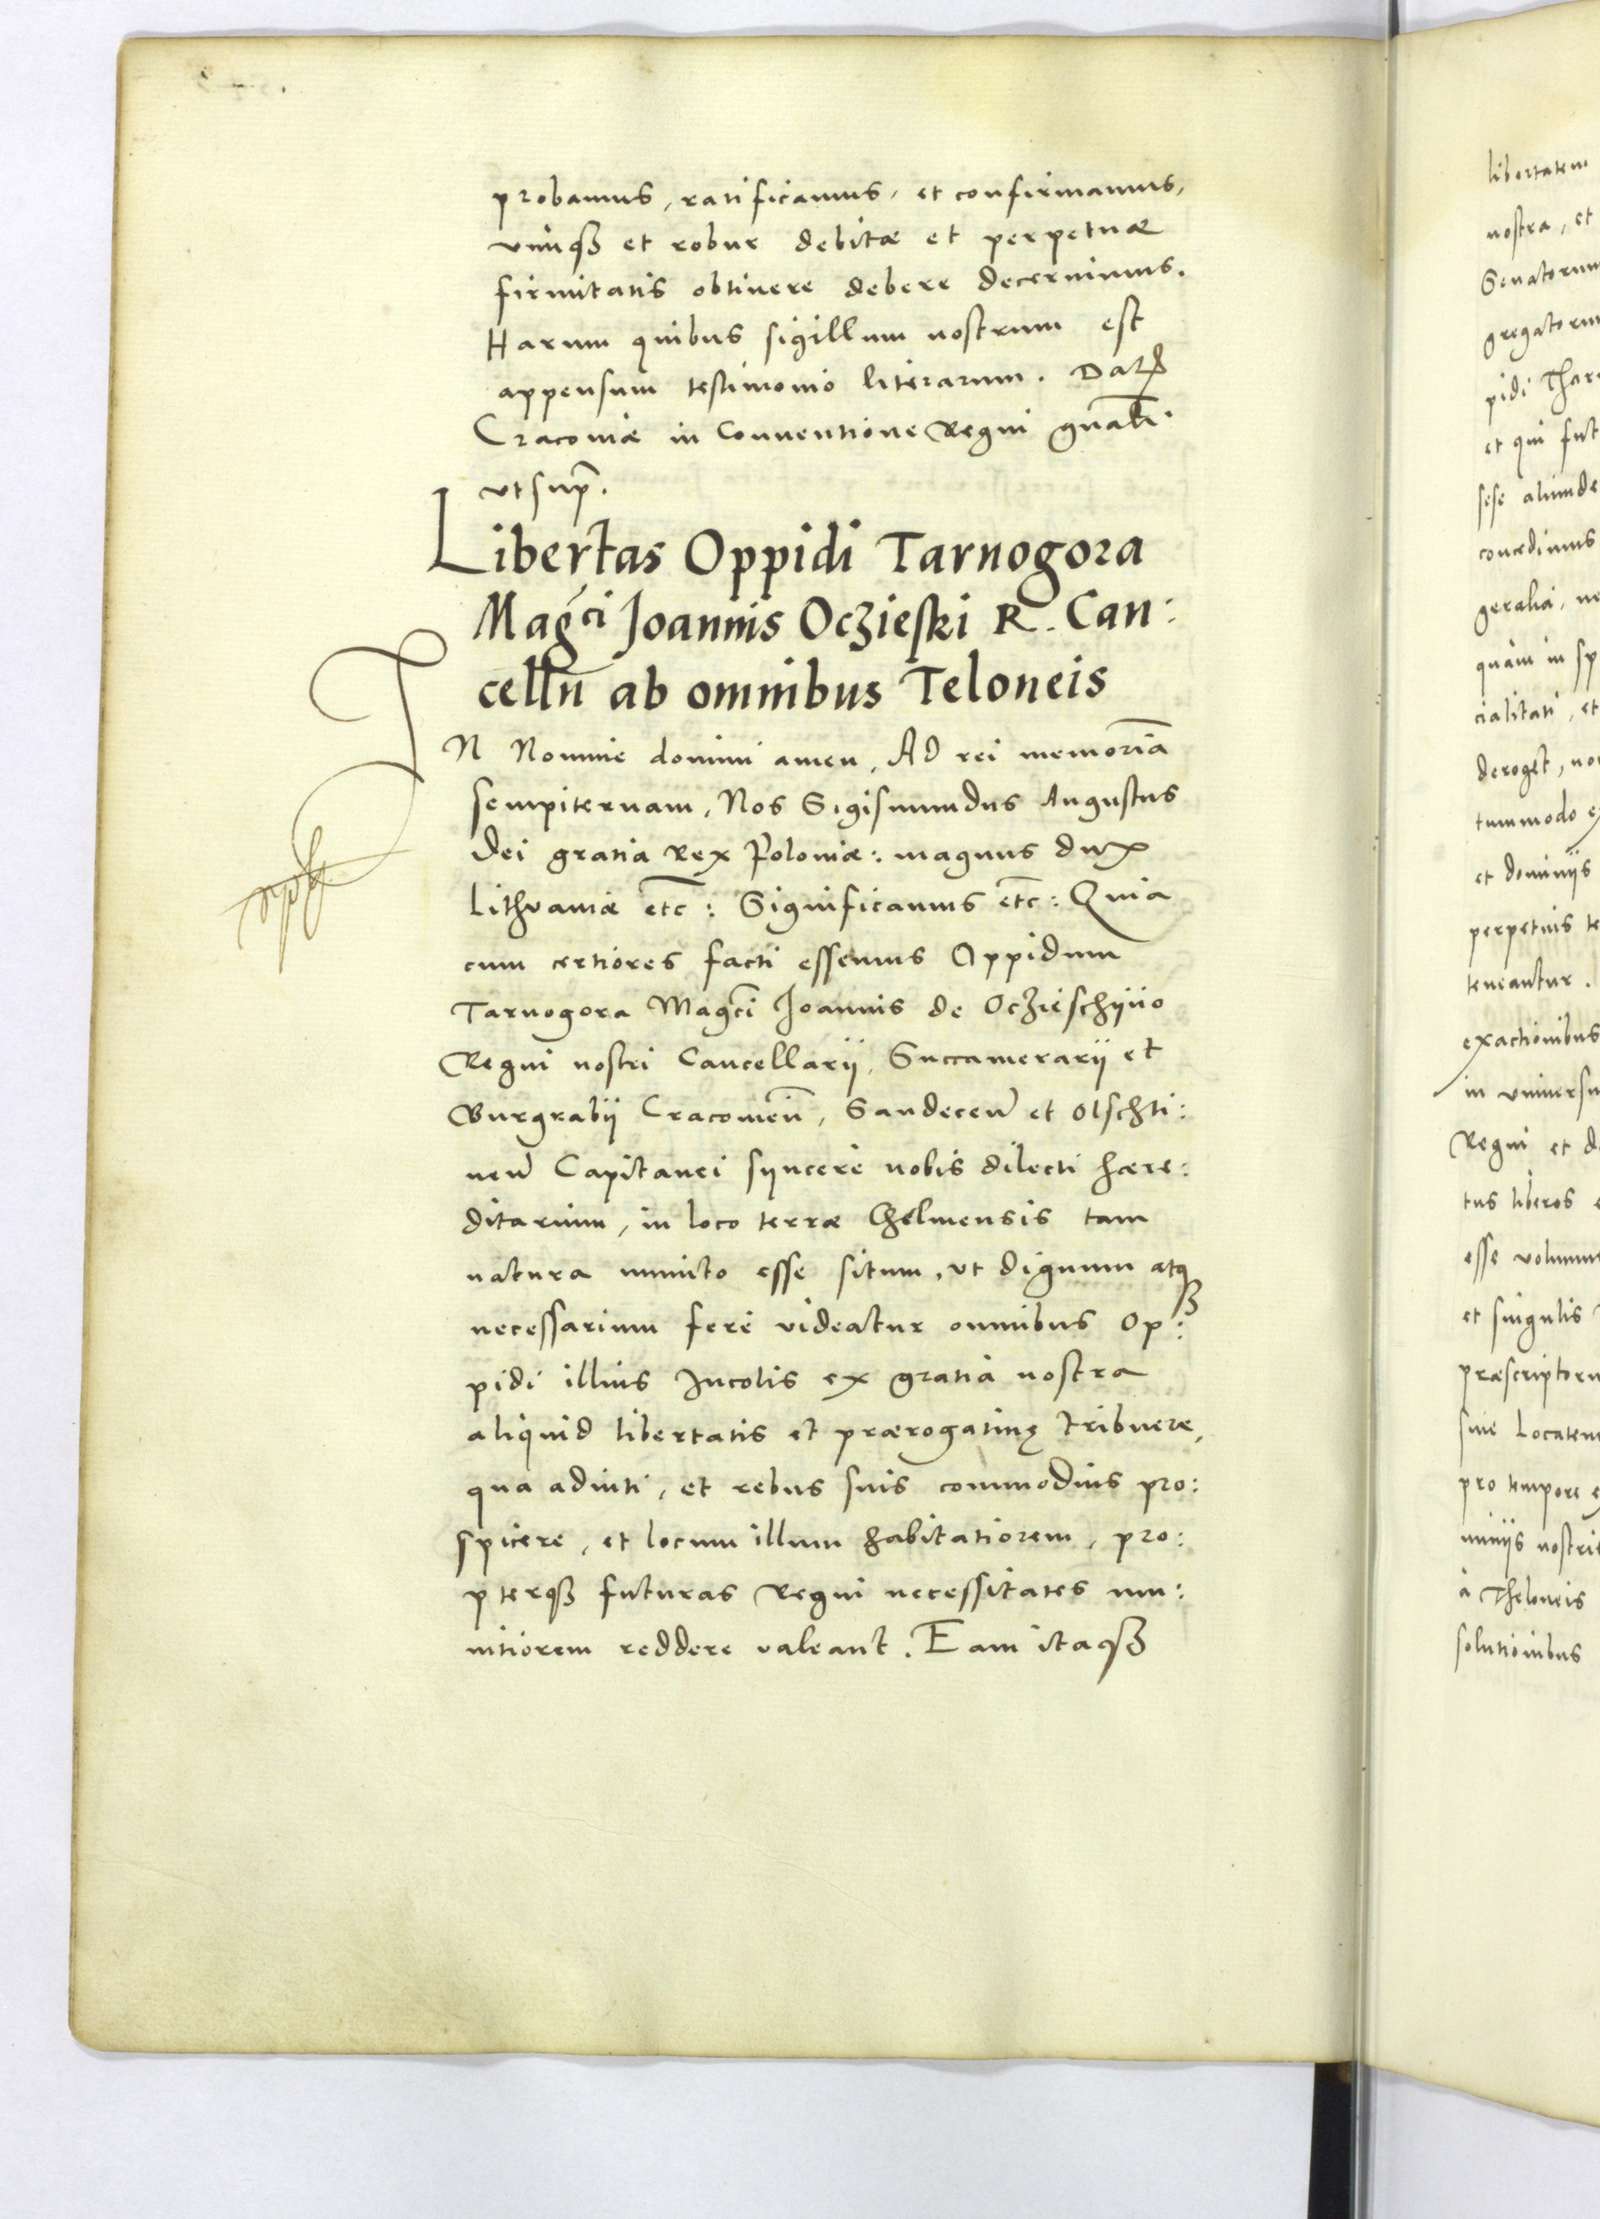 probamus, ratificamus, et confirmamus,
vimqȝ et robur debitæ et perpetuæ
firmitatis obtinere debere decernimus.
Harum quibus sigillum nostrum est
appensum testimonio literarum. Dat̃
Cracoviæ in Conventione Regni gnãli
vt sup̃.
Libertas Oppidi Tarnogora
Magci Joannis Oczieski R. Can:
celln ab omnibus Teloneis
IN Nomine domini amen, Ad rei memoriã
sempiternam, Nos Sigismundus Augustus
Dei gratia Rex Poloniæ: magnus dux
Lithvaniæ etc: Significamus etc: Quia
cum certiores facti essemus Oppidum
Tarnogora Magci Joannis de Oczieschijno
Regni nostri Cancellarij, Succamerarij et
Burgrabij Cracovien̄, Sandecen̄ et Olschti:
nen̄ Capitanei syncerè nobis dilecti hære:
ditarium, in loco terræ Chelmensis tam
natura munito esse situm, vt dignum atqȝ
necessarium ferè videatur omnibus Op:
pidi illius Incolis ex gratia nostra
aliquid libertatis et prærogatiuę tribuere,
qua adiuti, et rebus suis commodius pro:
spicere, et locum illum habitatiorem, pro:
pterqȝ futuras Regni necessitates mu:
nitiorem reddere valeant. Eam itaqȝ
libertatem
nostra, et
Senatorum
gregatorum
pidi Thar
et qui fut
sese aliunde
concedimus
geralia, ne
quàm in sp
cialitati, et
deroget, non
tummodo ex
et dominijs
perpetuis te
teneantur.
exactionibus
in vniversu
Regni et d
tus liberos e
esse volumu
et singulis
præscriptoru
siue Locaten
pro tempore e
minijs nostris
à Theloneis
solutionibus